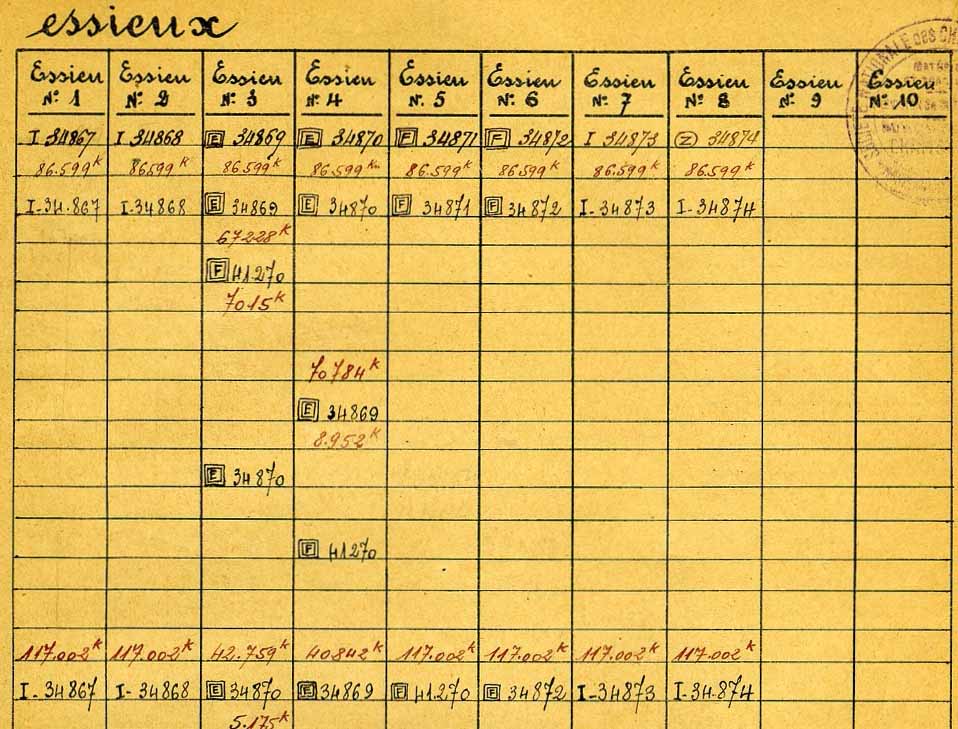 essieux
Essieu Essieu Essieu Essieu Essieu Essieu Essieu Essieu Essieu Essieu
N° 1 N° 2 N° 3 N° 4 N° 5 N° 6 N° 7 N° 8 N° 9 N° 10
I 34867 I 34868 E 34869 E 34870 F 34871 F 34872 I 34873 Z 34874
86.599 K 86599 K 86.599 K 86.599 Km 86.599 K 86.599 K 86.599 K 86.599 K
I-34.867 I-34868 E 34869 E 34870 F 34871 F 34872 I-34873 I-34874
67228 K
F 41.270
7015 K
70784 K
E 34869
8.952 K
E 34870
F 41270
117.002 K 117.002 K 42.759 K 40842 K 117.002 K 117.002 K 117.002 K 117.002 K
I-34867 I-34868 E 34870 E 34869 F 41270 E 34872 I-34873 I-34.874
5.175 K